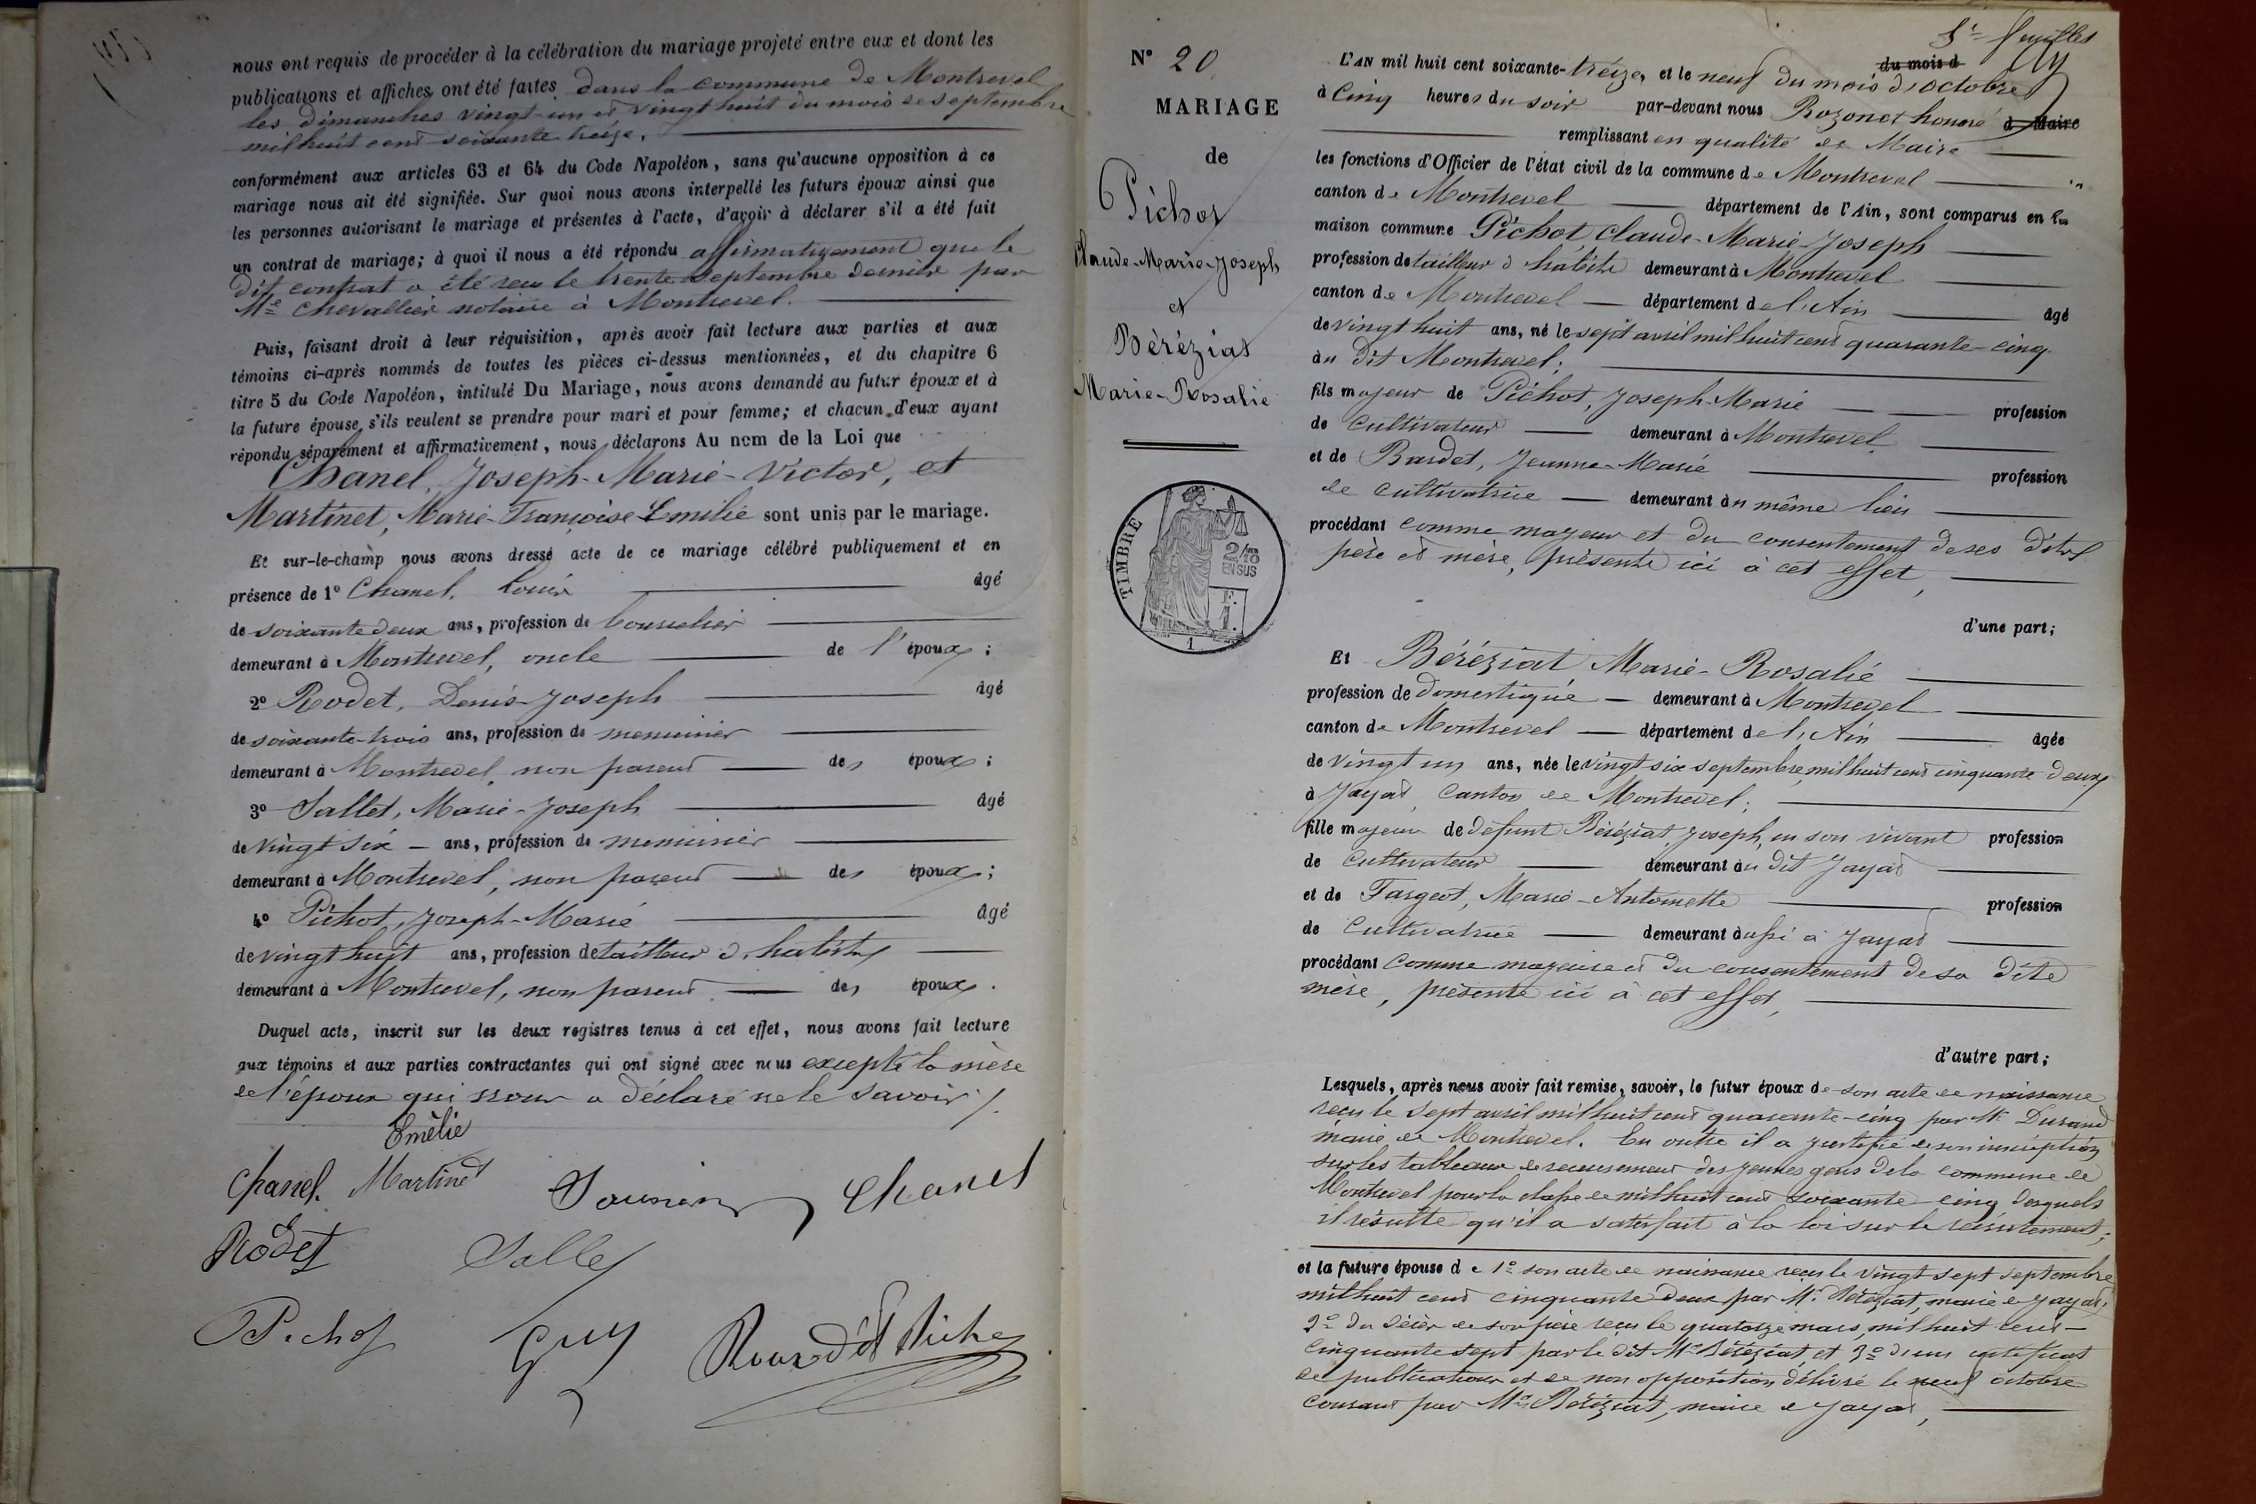 nous ont requis de procéder à la célébration du mariage projeté entre eux et dont les
publications et affiches ont été faites dans la commune de Montrevel
les dimanches vingt-un et vingt huit du mois de septembre
mil huit cent soixante treize.
conformément aux articles 63 et 64 du Code Napoléon, sans qu'aucune opposition à ce
mariage nous ait été signifiée. Sur quoi nous avons interpellé les futurs époux ainsi que
les personnes autorisant le mariage et présentes à l'acte, d'avoir à déclarer s'il a été fait
un contrat de mariage; à quoi il nous a été répondu affirmativement que le
dit contrat a été reçu le trente septembre dernier par
Me Chevallier notaire à Montrevel.
Puis, faisant droit à leur réquisition, après avoir fait lecture aux parties et aux
témoins ci-après nommés de toutes les pièces ci-dessus mentionnées, et du chapitre 6
titre 5 du Code Napoléon, intitulé Du Mariage, nous avons demandé au futur époux et à
la future épouse s'ils veulent se prendre pour mari et pour femme; et chacun d'eux ayant
répondu séparément et affirmativement, nous déclarons Au nom de la Loi que
Chanel, Joseph-Marie-Victor, et
Martinet, Marie-Françoise Emilie sont unis par le mariage.
Et sur-le-champ nous avons dressé acte de ce mariage célébré publiquement et en
présence de 1° Chanel, Louis âgé
de soixante deux ans, profession de bourrelier
demeurant à Montrevel, oncle de l'époux;
2° Rodet, Denis-Joseph âgé
de soixante-trois ans, profession de menuisier
demeurant à Montrevel, non parent des époux;
3° Sallet, Marie-Joseph âgé
de vingt six ans, profession de menuisier
demeurant à Montrevel, non parent des époux;
4° Pichot, Joseph-Marie âgé
de vingt huit ans, profession de tailleur d'habits
demeurant à Montrevel, non parent des époux.
Duquel acte, inscrit sur les deux registres tenus à cet effet, nous avons fait lecture
aux témoins et aux parties contractantes qui ont signé avec nous excepté la mère
de l'époux qui nous a déclaré ne le savoir /.
Emèlie
Chanel. Martinet Chanel
Rodet Salle
Pichot Guy
5e feuillet
N° 20
MARIAGE
de
Pichot
Claude-Marie-Joseph
et
Béréziat
Marie-Rosalie
TIMBRE
2/10
EN SUS
1
L'AN mil huit cent soixante-treize, et le neuf du mois d'octobre
du mois d
à cinq heures du soir par-devant nous Rozonet honoré d Maire
remplissant en qualité de Maire
les fonctions d'Officier de l'état civil de la commune de Montrevel
canton de Montrevel département de l'Ain, sont comparus en la
maison commune Pichot Claude-Marie-Joseph
profession de tailleur d'habits demeurant à Montrevel
canton de Montrevel département de l'Ain âgé
de vingt huit ans, né le sept avril mil huit cent quarante-cinq
au dit Montrevel;
fils majeur de Pichot, Joseph-Marie profession
de cultivateur demeurant à Montrevel
et de Bardet, Jeanne-Marie profession
de cultivatrice demeurant au même lieu
procédant comme majeur et du consentement de ses dits
père et mère, présents ici à cet effet,
d'une part;
Et Béréziat Marie-Rosalie
profession de domestique demeurant à Montrevel
canton de Montrevel département de l'Ain âgée
de vingt un ans, née le vingt six septembre mil huit cent cinquante deux
à Jayat, canton de Montrevel;
fille majeure de défunt Béréziat Joseph, en son vivant profession
de cultivateur demeurant au dit Jayat
et de Fargeot, Marie-Antoinette profession
de cultivatrice demeurant aussi à Jayat
procédant comme majeure et du consentement de sa dite
mère, présente ici à cet effet,
d'autre part;
Lesquels, après nous avoir fait remise, savoir, le futur époux de son acte de naissance
reçu le sept avril mil huit cent quarante-cinq par Mr Durand
maire de Montrevel. En outre il a justifié de son inscription
sur les tableaux de recensement des jeunes gens de la commune de
Montrevel pour la classe de mil huit cent soixante-cinq desquels
il résulte qu'il a satisfait à la loi sur le recrutement;
et la future épouse de 1° son acte de naissance reçu le vingt sept septembre
mil huit cent cinquante deux par Mr Béréziat, maire de Jayat;
2° du décès de son père reçu le quatorze mars mil huit cent
cinquante sept par le dit Mr Béréziat, et 3° d'un certificat
de publication et de non opposition délivré le neuf octobre
courant par Mr Béréziat, maire de Jayat,